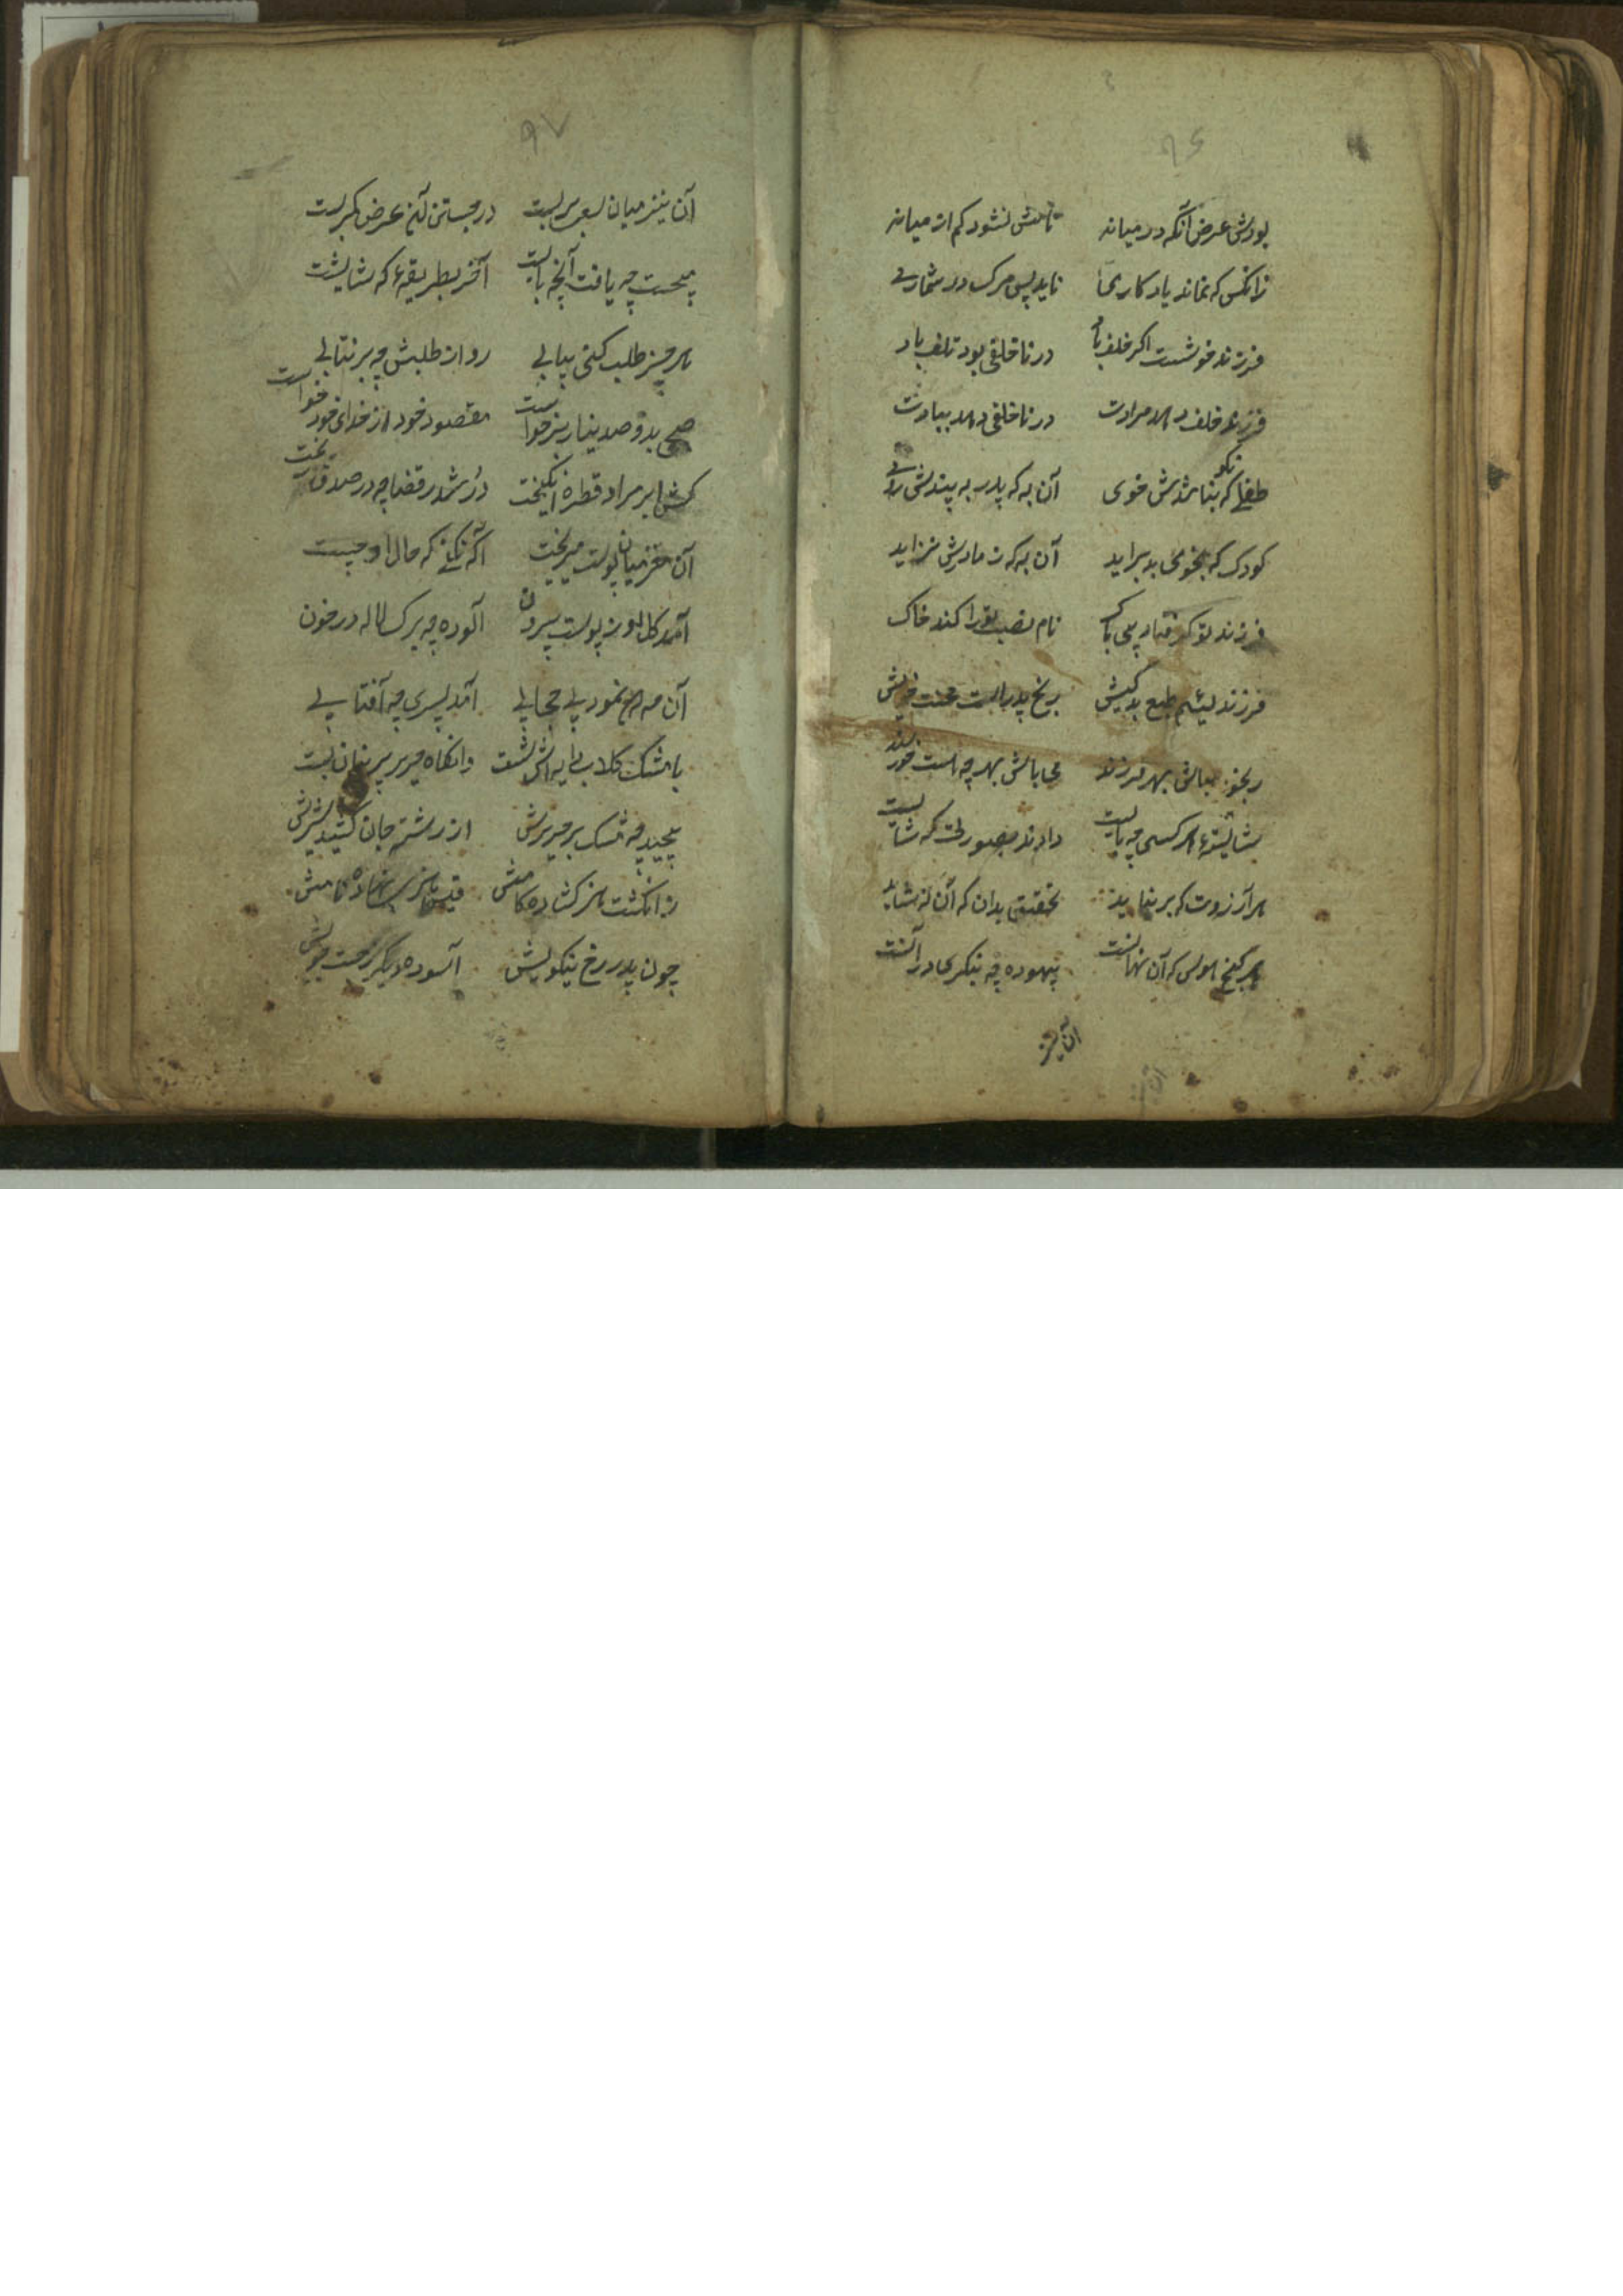 ۹۶
بودش عرض آنکه در میانه تا نامش نشود کم از میانه
زانکس که نماند یادکاری ناید پس مرک در شماری
فرزند خوشست اکر خلف باد در ناخلفی بود تلف باد
فرزند خلف دهد مرادت در ناخلفی دهد ببادت
طفلی که نباشدش نکو خوی آن به که پدر به بیندش
کودک که بخوی بد براید آن به که ز مادرش نزاید
فرزند تو کر فتاد بی باک نام نصب تو را کند خاک
فرزند لئیم طبع بد کیش رنج پدر است محنت خویش
رنجور مباش بهر فرزند می باش بهر چه هست خورسند
شایستهٔ هر کسی چه بایست دادند بصورتی که شایست
هر آرزوت که بر نیاید تحقیق بدان که آن نشاید
هر کنج هوس که آن نهانست بیهوده چه بنکری در آنست
آن نیز
۹۷
آن نیز میان بسعی بر بست در جستن این عرض کمر بست
میجست چه یافت آنچه بایست آخر بطریقهٔ که شایست
هر چیز طلب کنی بیابی رو از طلبش چه بر نتابی
صبحی بدو صد نیاز بر خواست مقصود خود از خدای خود خواست
کش ابر مراد قطره انکیخت در شد ز قضا چه در صدف ریخت
آن مغز میان پوست میزیست آکه نه که حال او چیست
آمد کل او ز پوست بیرون آلوده چه برک لاله در خون
آن مه رخ نمود بی حجابی آمد پسری چه آفتابی
با مشک کلاب دایه اش شست وانکاه حریر پرنیان بست
پیچید چه مشک بر حریرش از رشته جان کشید شیرش
ز انکشت هنر کشاده کامش قیس هنری نهاده نامش
چون پدر رخ نیکویش آسوده